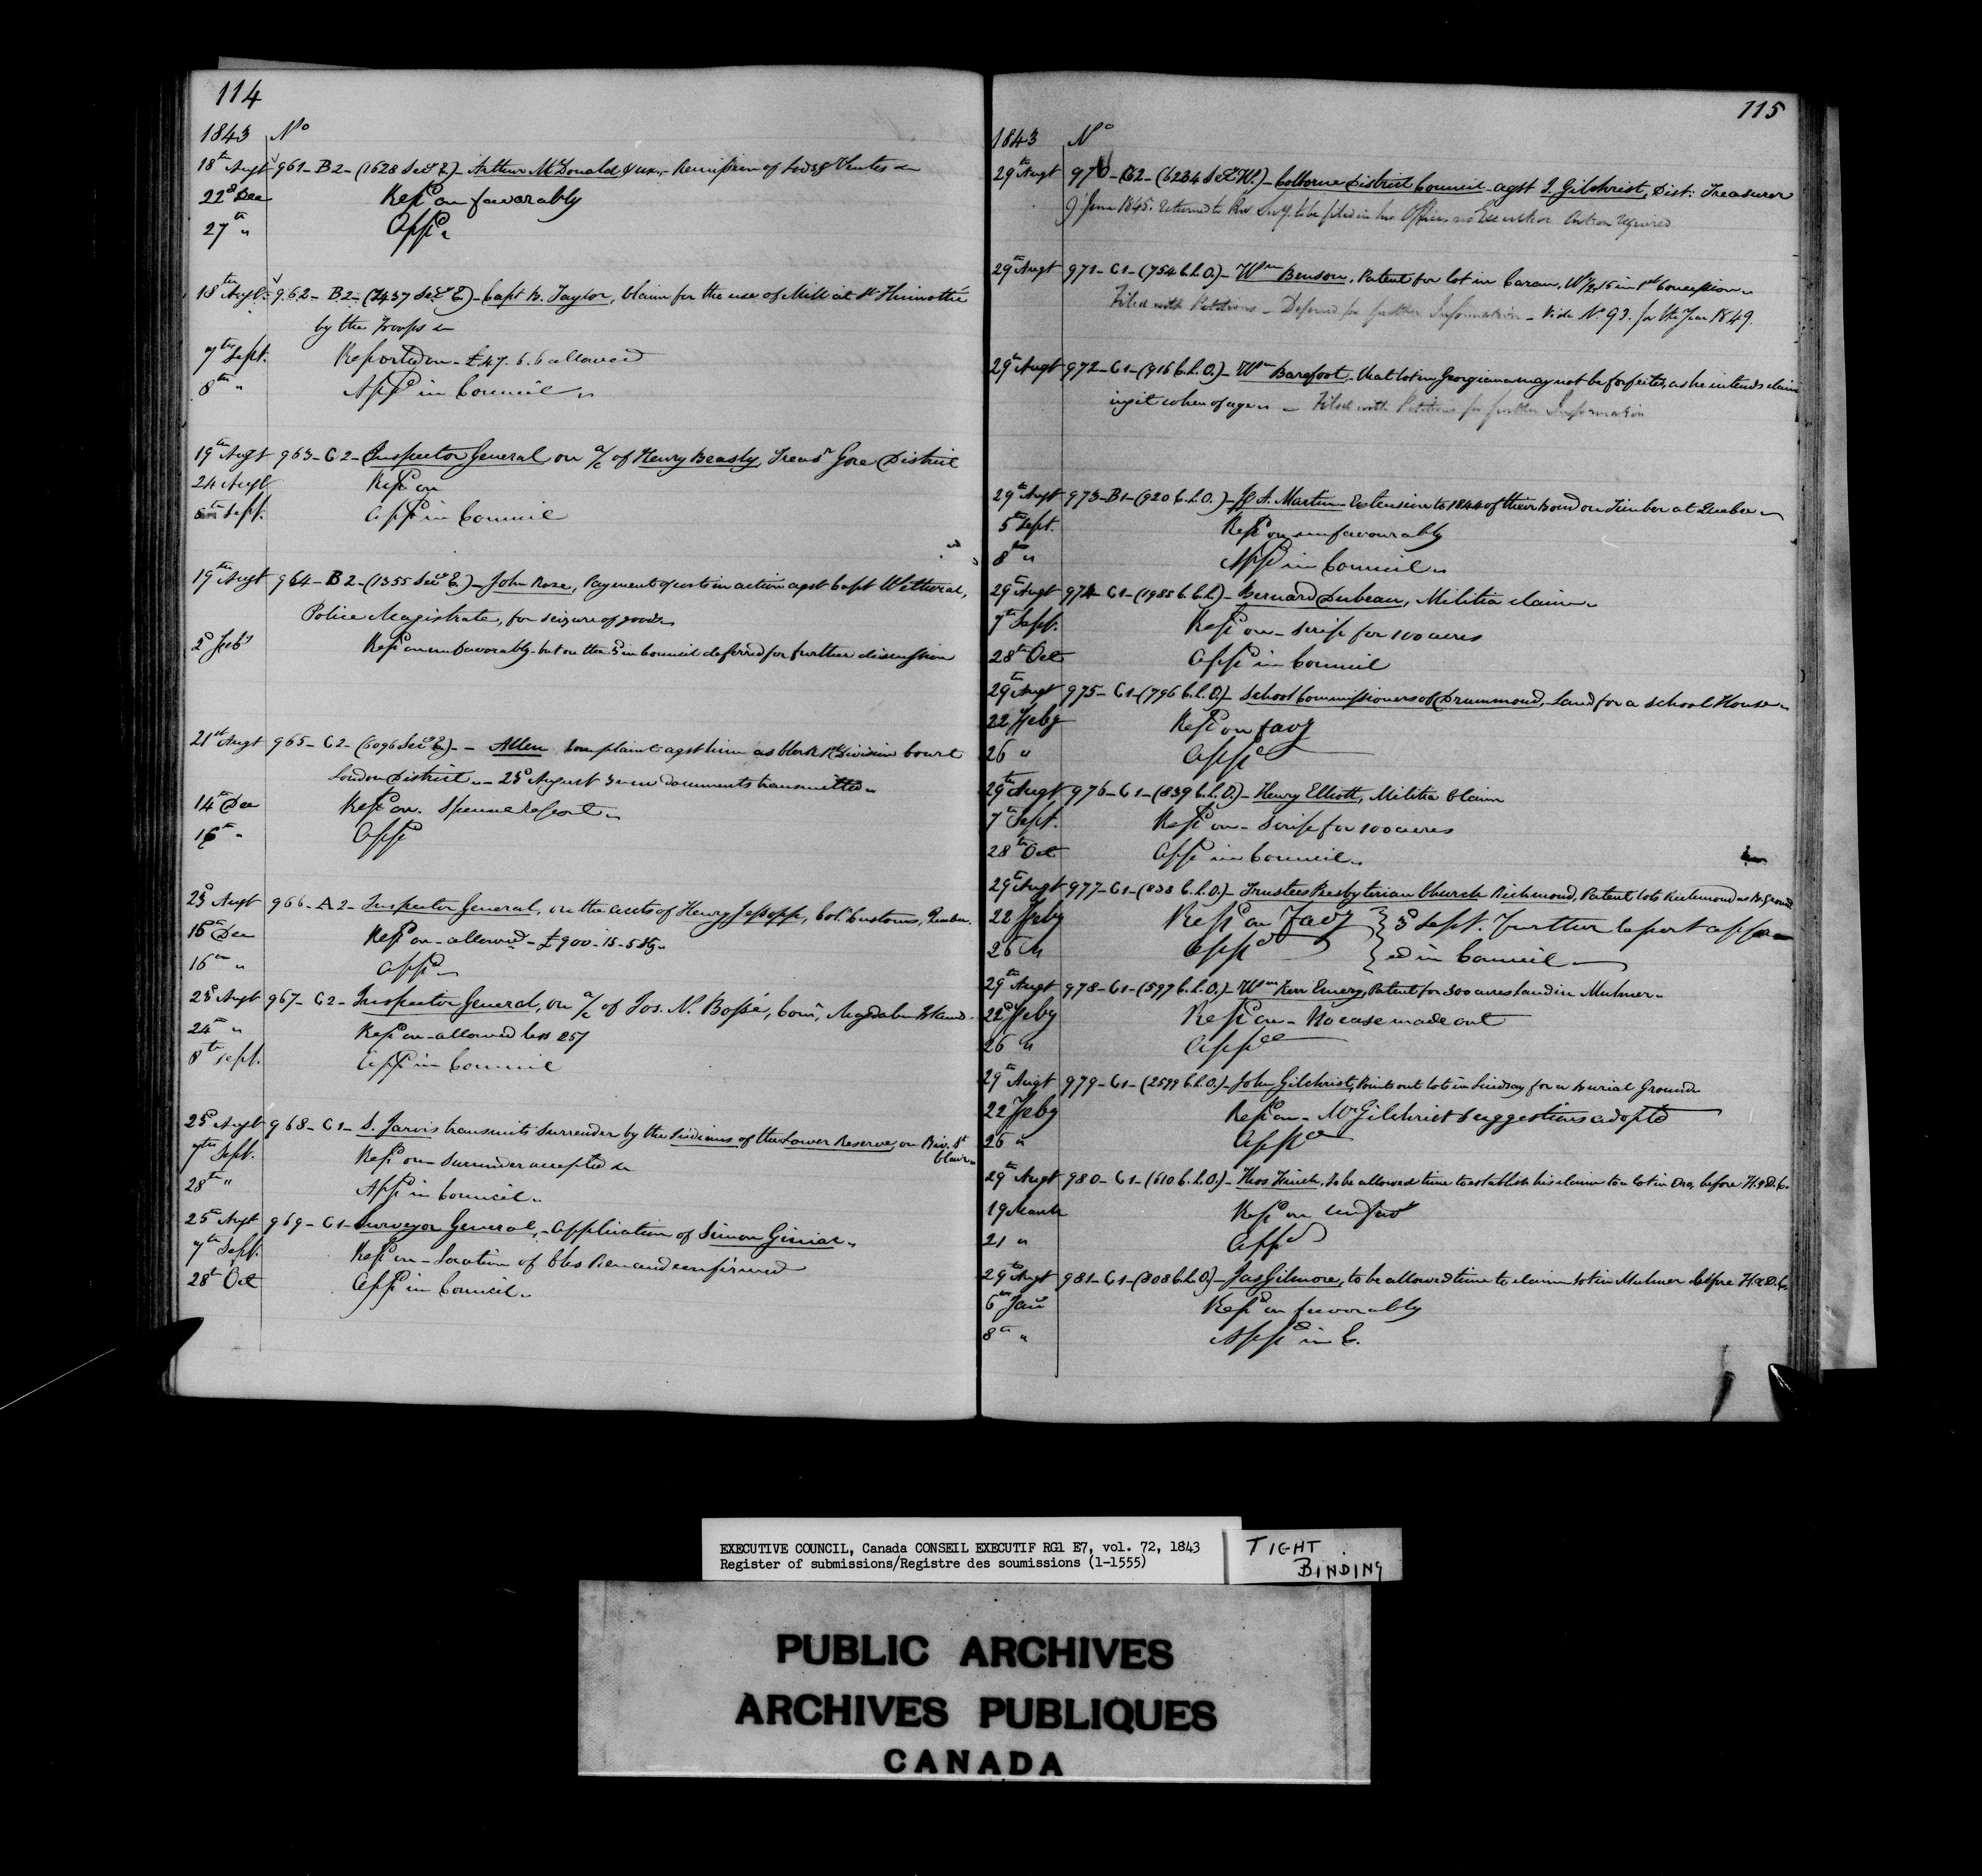 114
1843 No
18th Augt 961- B2- (1628 Secy E)- Arthur McDonald & ux.- Remission of Lods & Ventes
22d Dec Repd on favorably
27th " Appd
18th Augt. 962- B2- (2437 Secy E)- Capt B. Taylor, Claim for the use of Mill at St Thimothée
by the Troops
7th Sept. Reported on - £47. 6. 6 allowed
8th " Appd in Council
19th Augt 963- C2- Inspector General on a/c of Henry Beasly, Treasr Gore District
24 Augt Repd on
8th Sept. Appd in Council
19th Augt 964- B2- (1355 Secy E.)- John Rose, Payment of costs in action agst Capt Wetheral,
Police Magistrate, for seizure of goods
2d Feby Repd on unfavorably- but on the 5th in Council deferred for further discussion
21st Augt 965- C2- (6096 Secy)- - Allen Complaint agst him as Clerk 1st Division Court
London District - 23d August 3 new documents transmitted
14th Dec Repd on. Special Report
16th " Appd
23d Augt 966- A2- Inspector General, on the accts of Henry Jessopp, Colr Customs, Quebec
15th Dec Repd on - allowed - £900-15-5 Stg
16th " Appd
23d Augt 967- C2- Inspector General, on a/c of Jos. N. Bossé, Comr, Magdalen Islands
24th " Repd on - allowed less 25/
8th Sept. Appd in Council
25th Augt 968- C1- S. Jarvis transmits Surrender by the Indians of the Lower Reserve, on Riv. St
Clair
7th Sept. Repd on - Surrender accepted
28th " Appd in Council
25th Augt 969- C1- Surveyor General,- Application of Simon Giniac
7th Sept. Repd on - Location of Cles Remand confirmed
28th Oct Appd in Council
115
1843 No
29th Augt 970- C2- (6234 Secy W.)- Colborne District Council agst J. Gilchrist, Dist: Treasurer
9 June 1845. Returned to Prov Secy. to be filed in his Office, no Executive Action required
29th Augt 971- C1- (754 C.L.O.)- Wm Benson, Patent for lot in Caran, W/2 15 in 1st Concession
Filed with Petitions - Deferred for further Information - Vide No 93. for the Year 1849.
29th Augt 972- C1- (916 C.L.O.)- Wm Barefoot,- that lot in Georgiana may not be forfeited, as he intends claim
ing it when of age - Filed with Petitions for further Information
29th Augt 973- B1- (920 C.L.O.)- A. Martin - Extension to 1844 of their Bond on Timber at Quebec
5th Sept. Repd on unfavourably
8th " Appd in Council
29th Augt 974- C1- (1988 C.C.L)- Bernard Dubeau, Militia claim
7th Sept. Repd on - Scrip for 100 acres
28th Oct Appd in Council
29th Augt 975- C1- (796 C.L.O.)- School Commissioners of Drummond, Land for a School House
22 Feby Repd on favy
26 " Appd
29th Augt 976- C1- (839 C.L.O.)- Henry Elliott, Militia Claim
7th Sept. Repd on - Scrip for 100 acres
28th Oct Appd in Council
29th Augt 977- C1- (838 C.L.O.)- Trustees Presbyterian Church Richmond, Patent lots Richmond as B. Ground
22 Feby Repd on Favy } 3d Sept. Further Report appro-
26 " Appd } ed in Council
29th Augt 978- C1- (597 C.L.O.)- Wm Kerr Emery, Patent for 300 acres land in Mulmer
22d Feby Repd on - No case made out
26 " Appd
29th Augt 979- C1- (2599 C.L.O.)- John Gilchrist, Points out lots in Lindsay for a Burial Ground
22 Feby Repd on - Mr Gilchrist suggestions adopted
26 " Appd
29th Augt 980- C1- (610 C.L.O.)- Thos Finch, to be allowed time to establish his claim to a lot in Oro, before H. & D. C.
19 March Repd on unfavy
21 " Appd
29th Augt 981- C1- (808 C.L.O.)- Jas Gilmore, to be allowed time to claim lot in Mulmer before H. & D. C.
6th Jany Repd on favorably
8th " Appd in C.
EXECUTIVE COUNCIL, Canada CONSEIL EXECUTIF RG1 E7, vol. 72, 1843
Register of submissions/Registre des soumissions (1-1555)
TIGHT
BINDING
PUBLIC ARCHIVES
ARCHIVES PUBLIQUES
CANADA